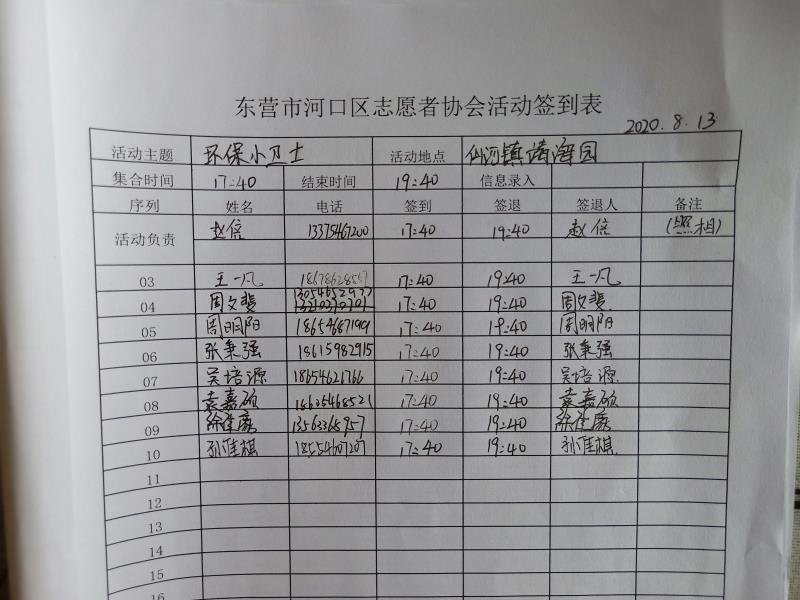 东营市河口区志愿者协会活动签到表
2020.8.13
活动主题 环保小卫士 活动地点 仙河镇靖海园
集合时间 17:40 结束时间 19:40 信息录入
序列 姓名 电话 签到 签退 签退人 备注
活动负责 赵信 13375467200 17:40 19:40 赵信 (照相)
03 王一凡 17:40 19:40 王一凡
04 周文斐 17:40 19:40 周文斐
05 周明阳 17:40 19:40 周明阳
06 张秉强 18615982915 17:40 19:40 张秉强
07 吴培源 18654621766 17:40 19:40 吴培源
08 袁嘉硕 17:40 19:40 袁嘉硕
09 徐健康 13563365957 17:40 19:40 徐健康
10 孙佳棋 18554607207 17:40 19:40 孙佳棋
11
12
13
14
15
16